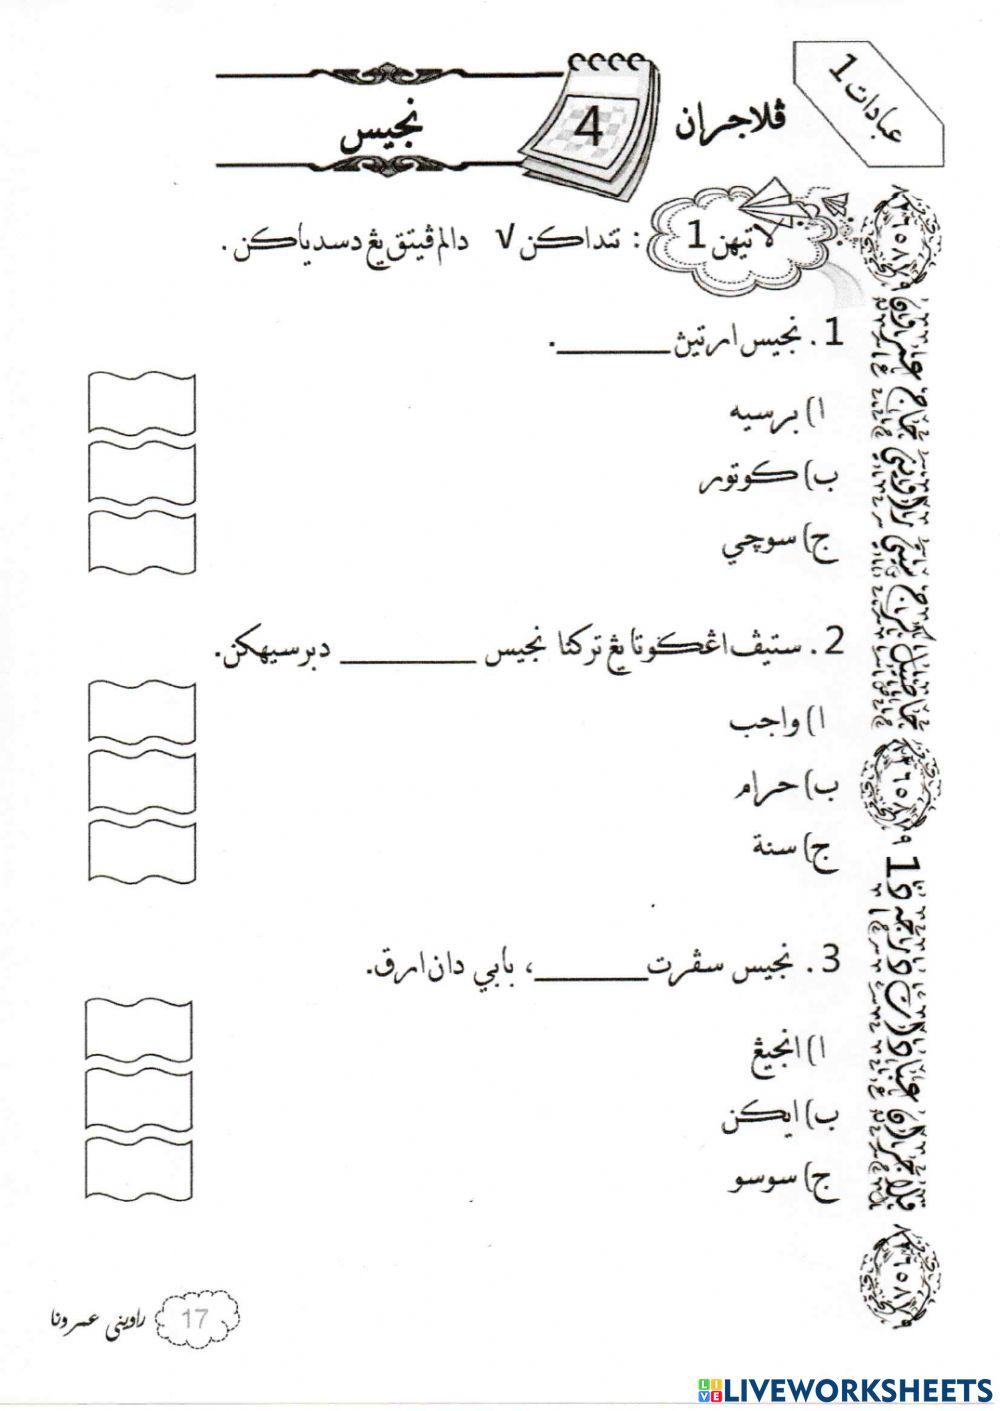 عبادات 1
ڤلاجران 4 نجيس
لاتيهن 1 : تنداكن √ دالم ڤيتق يڠ دسدياكن .
1 . نجيس ارتيڽ ________.
ا) برسيه
ب) كوتور
ج) سوچي
2 . ستيڤ اڠݢوتا يڠ تركنا نجيس ________ دبرسيهكن.
ا) واجب
ب) حرام
ج) سنة
3 . نجيس سڤرت________، بابي دان ارق.
ا) انجيڠ
ب) ايكن
ج) سوسو
17
LIVEWORKSHEETS